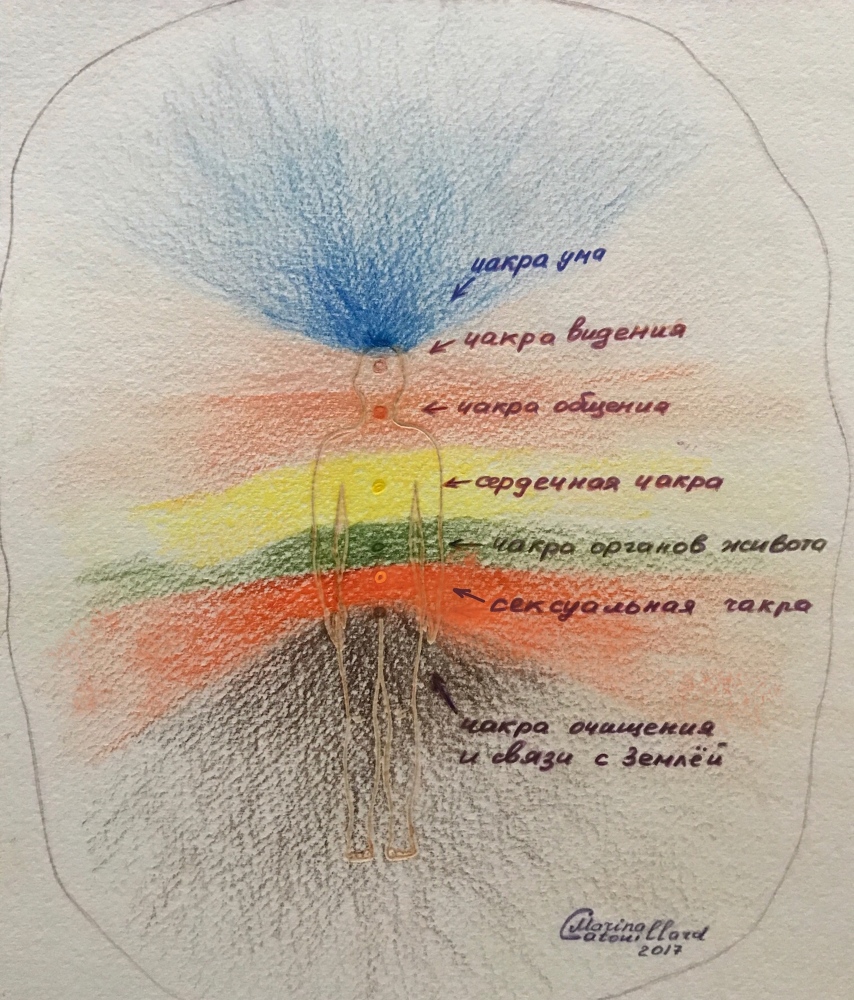 чакра ума
чакра видения
чакра общения
сердечная чакра
чакра органов живота
сексуальная чакра
чакра очищения
и связи с Землёй
Marina
Catouillard
2017